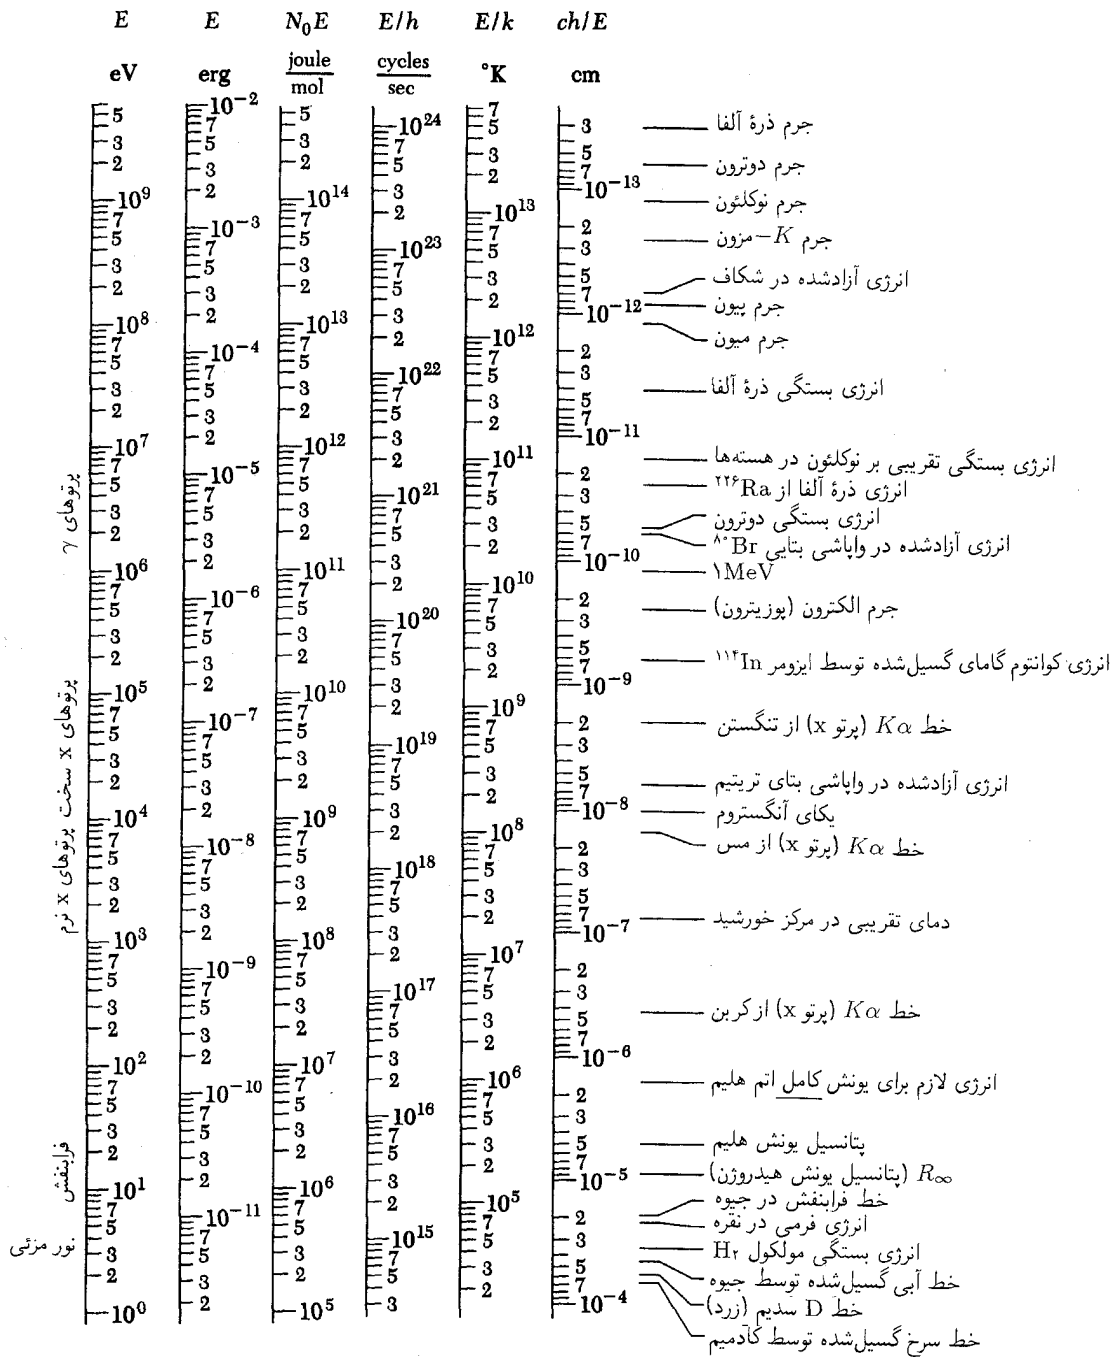 E E N₀E E/h E/k ch/E
eV erg joule/mol cycles/sec °K cm
5 3 2 10⁹ 7 5 3 2 10⁸ 7 5 3 2 10⁷ 7 5 3 2 10⁶ 7 5 3 2 10⁵ 7 5 3 2 10⁴ 7 5 3 2 10³ 7 5 3 2 10² 7 5 3 2 10¹ 7 5 3 2 10⁰
10⁻² 7 5 3 2 10⁻³ 7 5 3 2 10⁻⁴ 7 5 3 2 10⁻⁵ 7 5 3 2 10⁻⁶ 7 5 3 2 10⁻⁷ 7 5 3 2 10⁻⁸ 7 5 3 2 10⁻⁹ 7 5 3 2 10⁻¹⁰ 7 5 3 2 10⁻¹¹ 7 5 3 2
5 3 2 10¹⁴ 7 5 3 2 10¹³ 7 5 3 2 10¹² 7 5 3 2 10¹¹ 7 5 3 2 10¹⁰ 7 5 3 2 10⁹ 7 5 3 2 10⁸ 7 5 3 2 10⁷ 7 5 3 2 10⁶ 7 5 3 2 10⁵
10²⁴ 7 5 3 2 10²³ 7 5 3 2 10²² 7 5 3 2 10²¹ 7 5 3 2 10²⁰ 7 5 3 2 10¹⁹ 7 5 3 2 10¹⁸ 7 5 3 2 10¹⁷ 7 5 3 2 10¹⁶ 7 5 3 2 10¹⁵ 7 5 3
7 5 3 2 10¹³ 7 5 3 2 10¹² 7 5 3 2 10¹¹ 7 5 3 2 10¹⁰ 7 5 3 2 10⁹ 7 5 3 2 10⁸ 7 5 3 2 10⁷ 7 5 3 2 10⁶ 7 5 3 2 10⁵ 7 5 3 2
3 5 7 10⁻¹³ 2 3 5 7 10⁻¹² 2 3 5 7 10⁻¹¹ 2 3 5 7 10⁻¹⁰ 2 3 5 7 10⁻⁹ 2 3 5 7 10⁻⁸ 2 3 5 7 10⁻⁷ 2 3 5 7 10⁻⁶ 2 3 5 7 10⁻⁵ 2 3 5 7 10⁻⁴
جرم ذرهٔ آلفا
جرم دوترون
جرم نوکلئون
جرم K-مزون
انرژی آزادشده در شکاف
جرم پیون
جرم میون
انرژی بستگی ذرهٔ آلفا
انرژی بستگی تقریبی بر نوکلئون در هسته‌ها
انرژی ذرهٔ آلفا از ²²⁶Ra
انرژی بستگی دوترون
انرژی آزادشده در واپاشی بتایی ⁸⁰Br
۱MeV
جرم الکترون (پوزیترون)
انرژی کوانتوم گامای گسیل‌شده توسط ایزومر ¹¹⁴In
خط Kα (پرتو x) از تنگستن
انرژی آزادشده در واپاشی بتای تریتیم
یکای آنگستروم
خط Kα (پرتو x) از مس
دمای تقریبی در مرکز خورشید
خط Kα (پرتو x) از کربن
انرژی لازم برای یونش کامل اتم هلیم
پتانسیل یونش هلیم
R∞ (پتانسیل یونش هیدروژن)
خط فرابنفش در جیوه
انرژی فرمی در نقره
انرژی بستگی مولکول H₂
خط آبی گسیل‌شده توسط جیوه
خط D سدیم (زرد)
خط سرخ گسیل‌شده توسط کادمیم
پرتوهای γ
پرتوهای x سخت
پرتوهای x نرم
فرابنفش
نور مرئی